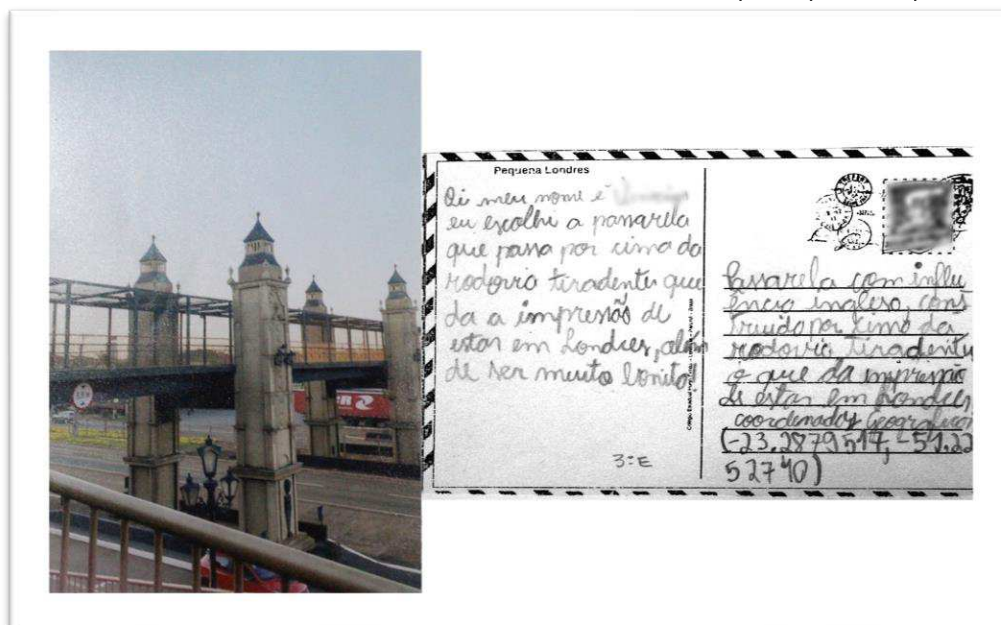 Pequena Londres
Oi meu nome é
eu escolhi a passarela
que passa por cima da
rodovia tiradentes que
da a impressão de
estar em Londres, além
de ser muito bonita
3ºE
Passarela com influ
ência inglesa, cons
truida por cima da
rodovia tiradentes
o que da impressão
de estar em Londres
coordenadas Geograficas
(-23.2879517, -51.22
52740)